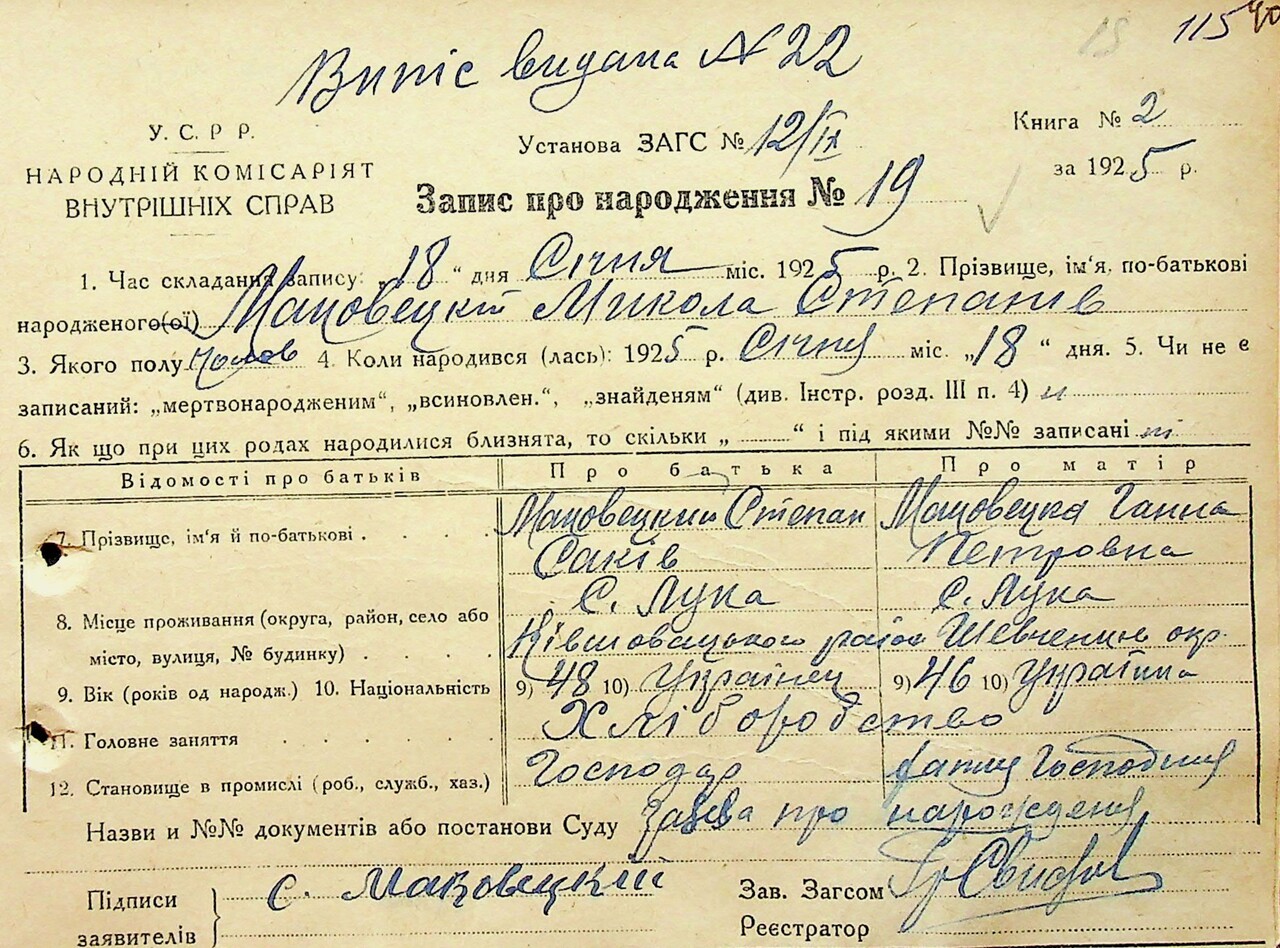 115
Випіс видана № 22
У. С. Р Р.
НАРОДНІЙ КОМІСАРІЯТ
ВНУТРІШНІХ СПРАВ
Установа ЗАГС № 12/IX
Запис про народження № 19
Книга № 2
за 1925 р.
1. Час складання запису: „18“ дня Січня міс. 1925 р. 2. Прізвище, ім‘я, по-батькові
народженого(ої) Мацовецкій Микола Степанів
3. Якого полу чолов 4. Коли народився (лась): 1925 р. Січня міс. „18“ дня. 5. Чи не є
записаний: „мертвонародженим“, „всиновлен.“, „знайденям“ (див. Інстр. розд. III п. 4) н
6. Як що при цих родах народилися близнята, то скільки „ “ і під якими №№ записані ні
Відомості про батьків Про батька Про матір
7. Прізвище, ім‘я й по-батькові Мацовецкий Степан Мацовецка Ганна
Саків Петровна
8. Місце проживання (округа, район, село або С. Лука С. Лука
місто, вулиця, № будинку) Ківшовацького район Шевченків окр.
9. Вік (років од народж.) 10. Національність 9) 48 10) Українец 9) 46 10) Українка
11. Головне заняття Хліборобство
12. Становище в промислі (роб., служб., хаз.) Господар Господиня
Назви и №№ документів або постанови Суду Заява про народження
Підписи
заявителів
С. Маковецкій
Зав. Загсом
Реєстратор